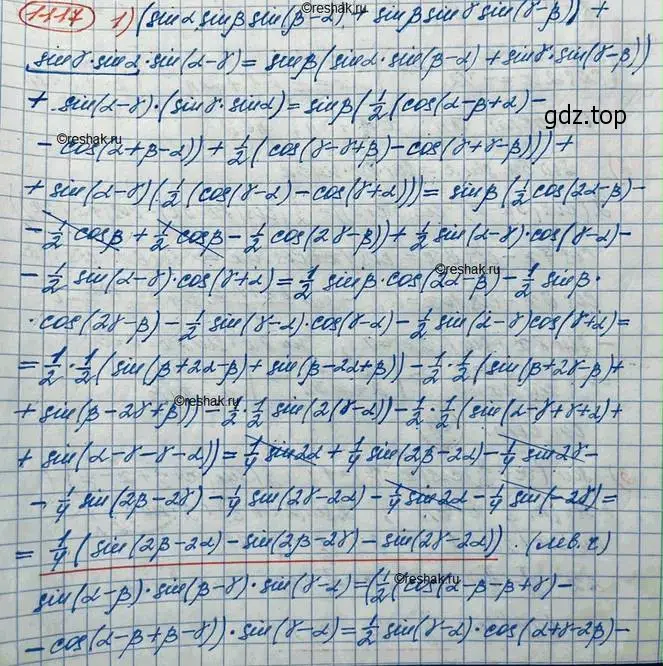 14.17 1) (sinα sinβ sin(β-α) + sinβ sinγ sin(γ-β)) +
sinγ·sinα·sin(α-γ) = sinβ(sinα·sin(β-α) + sinγ·sin(γ-β))
+ sin(α-γ)·(sinγ·sinα) = sinβ(1/2(cos(α-β+α) -
gdz.top
- cos(α+β-α)) + 1/2(cos(γ-γ+β) - cos(γ+γ-β))) +
+ sin(α-γ)(1/2(cos(γ-α) - cos(γ+α))) = sinβ(1/2 cos(2α-β) -
- 1/2 cosβ + 1/2 cosβ - 1/2 cos(2γ-β)) + 1/2 sin(α-γ)·cos(γ-α) -
- 1/2 sin(α-γ)·cos(γ+α) = 1/2 sinβ·cos(2α-β) - 1/2 sinβ·
·cos(2γ-β) - 1/2 sin(γ-α)·cos(γ-α) - 1/2 sin(α-γ)cos(γ+α) =
= 1/2·1/2(sin(β+2α-β) + sin(β-2α+β)) - 1/2·1/2(sin(β+2γ-β) +
+ sin(β-2γ+β)) - 1/2·1/2 sin(2(γ-α)) - 1/2·1/2(sin(α-γ+γ+α) +
+ sin(α-γ-γ-α)) = 1/4 sin2α + 1/4 sin(2β-2α) - 1/4 sin2γ -
- 1/4 sin(2β-2γ) - 1/4 sin(2γ-2α) - 1/4 sin2α - 1/4 sin(-2γ) =
= 1/4(sin(2β-2α) - sin(2β-2γ) - sin(2γ-2α)). (лев.ч)
sin(α-β)·sin(β-γ)·sin(γ-α) = (1/2(cos(α-β-β+γ) -
- cos(α-β+β-γ))·sin(γ-α) = 1/2 sin(γ-α)·cos(α+γ-2β) -
©reshak.ru
©reshak.ru
©reshak.ru
©reshak.ru
©reshak.ru
©reshak.ru